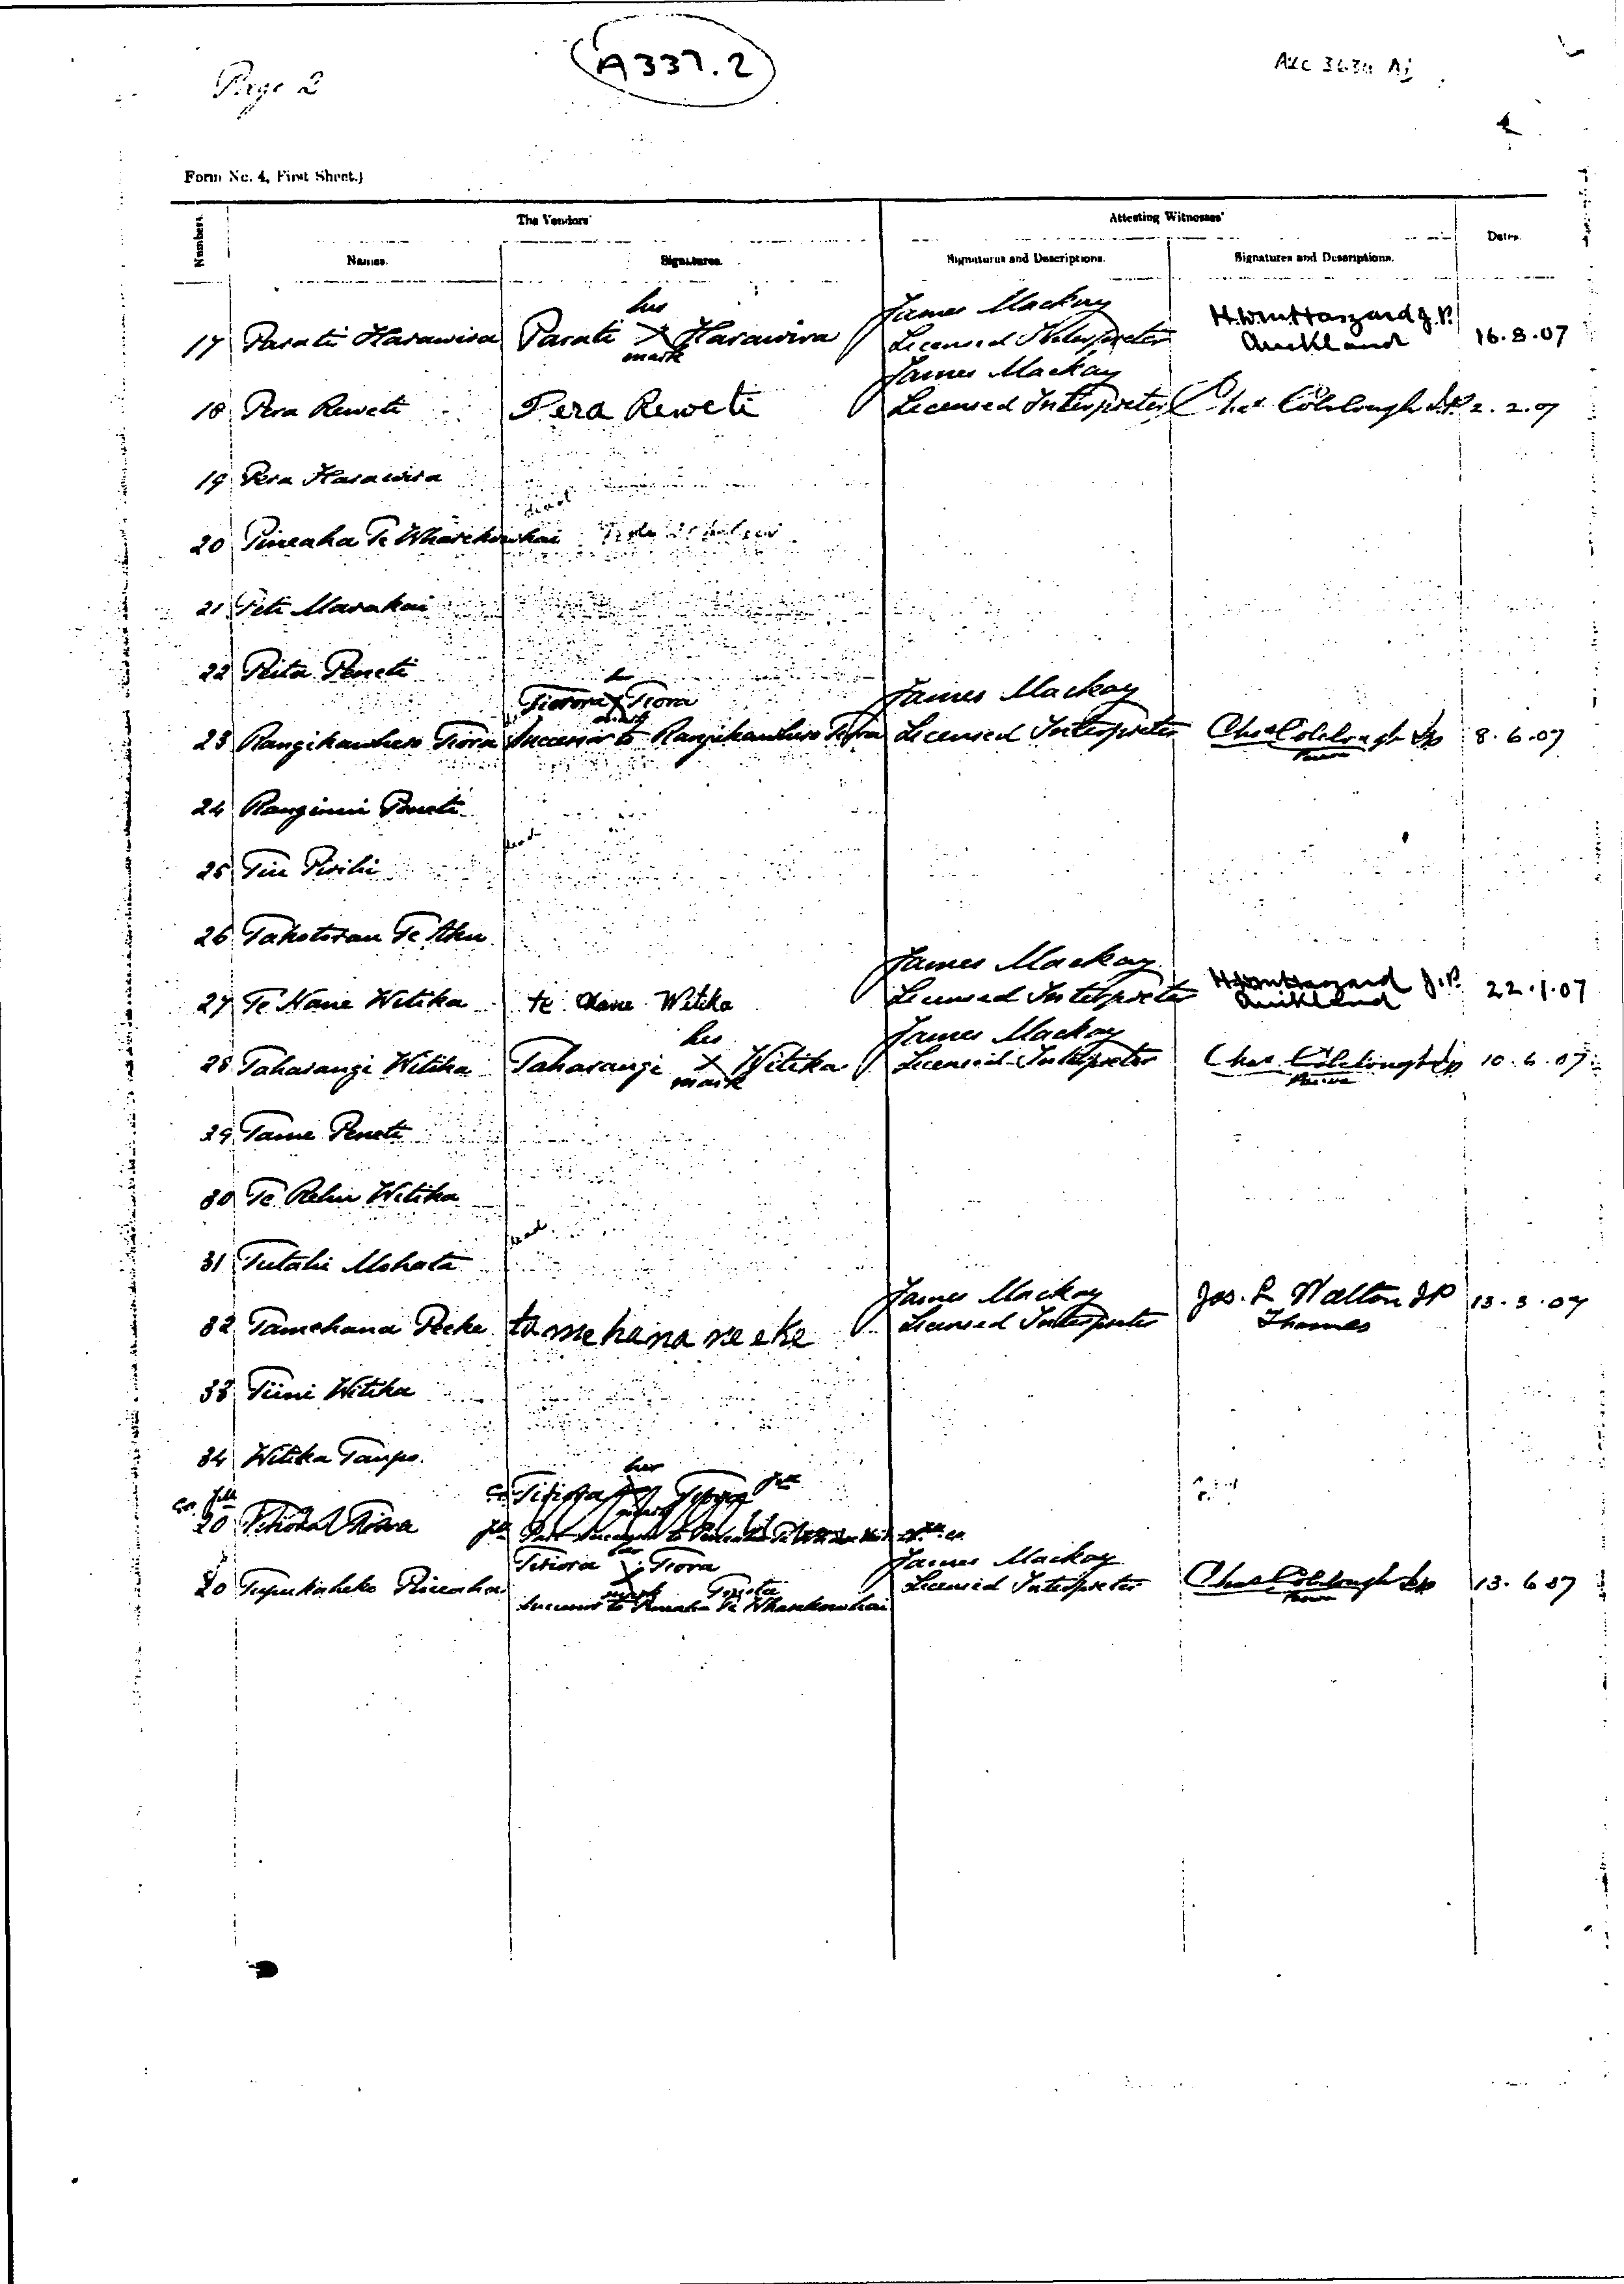 Page 2
A337.2
Form No. 4, First Sheet.)
Numbers.
The Vendors'
Attesting Witnesses'
Dates.
Names.
Signatures.
Signatures and Descriptions.
Signatures and Descriptions.
his
James Mackay
17 Parati Harawira Parati X Harawira Licensed Interpreter J.P. 16.8.07
mark
Auckland
James Mackay
18 Pera Reweti Pera Reweti Licensed Interpreter Chas Colclough J.P. 2.2.07
19 Pera Harawira
dead
20 Pineaha Te Wharekowhai
21 Piti Marakai
22 Rita Peneti
Tiorora X Tiora
James Mackay
23 Rangikauhero Tiora Successor to Rangikauhero Tiora Licensed Interpreter Chas Colclough JP 8.6.07
24 Ranginui Peneti
dead
25 Tiu Pirihi
26 Te
James Mackay
27 Te Hane Witika te Hane Witika Licensed Interpreter J.P. 22.1.07
Auckland
his
James Mackay
28 Taharangi Witika Taharangi X Witika Licensed Interpreter Chas Colclough Jp 10.6.07
mark
Paeroa
29 Tame Peneti
30 Te Rehu Witika
dead
31 Tutahi Mohata
James Mackay
Jos. R Walton JP
32 Tamehana Reeke tamehana reeke Licensed Interpreter 13.3.07
Thames
33 Tiini Witika
34 Witika Taupo
her
20 Tiora
mark
her
Titiora X Tiora
James Mackay
20 Pineaha
mark
Licensed Interpreter Chas Colclough Jp 13.6.07
Successor to Pineaha Te Wharekowhai